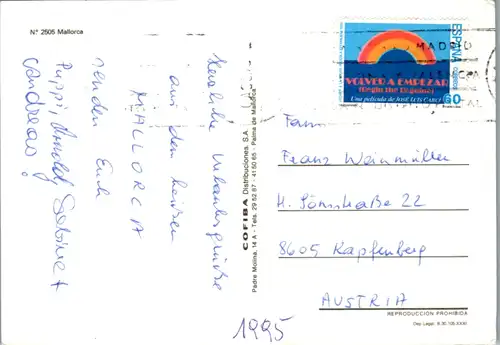 Nº 2505 Mallorca
Herzliche Urlaubsgrüße
aus dem heißen
MALLORCA
senden Euch
Puppi, Arnold, Sabine +
Andreas!
COFIBA Distribuciones, S.A.
Padre Molina, 14 A - Tels. 29 52 87 - 41 50 65 - Palma de Mallorca
MADRID
ESPAÑA
CORREOS
60
VOLVER A EMPEZAR
(Begin the Beguine)
Una película de JOSÉ LUIS GARCI
Fam
Franz Weinmüller
8605 Kapfenberg
AUSTRIA
REPRODUCCIÓN PROHIBIDA
1995